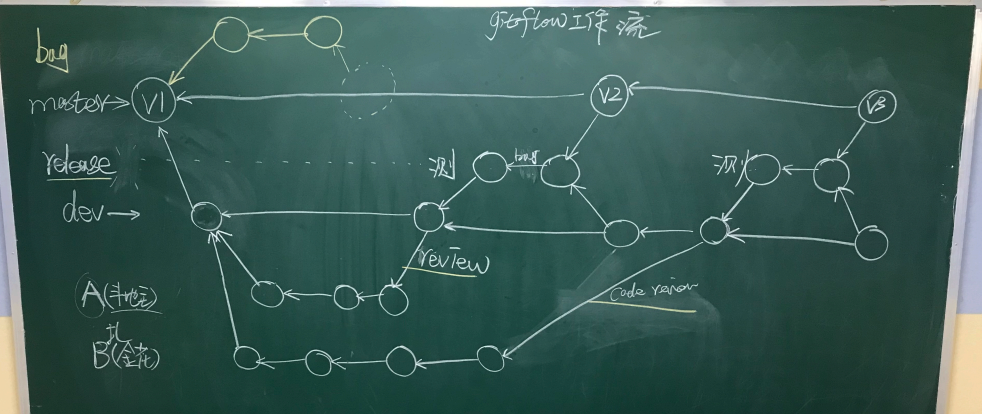 gitflow工作流
bag
master
V1
V2
V3
release
测
bug
测
dev
review
A(斗地主)
code review
B(炸金花)